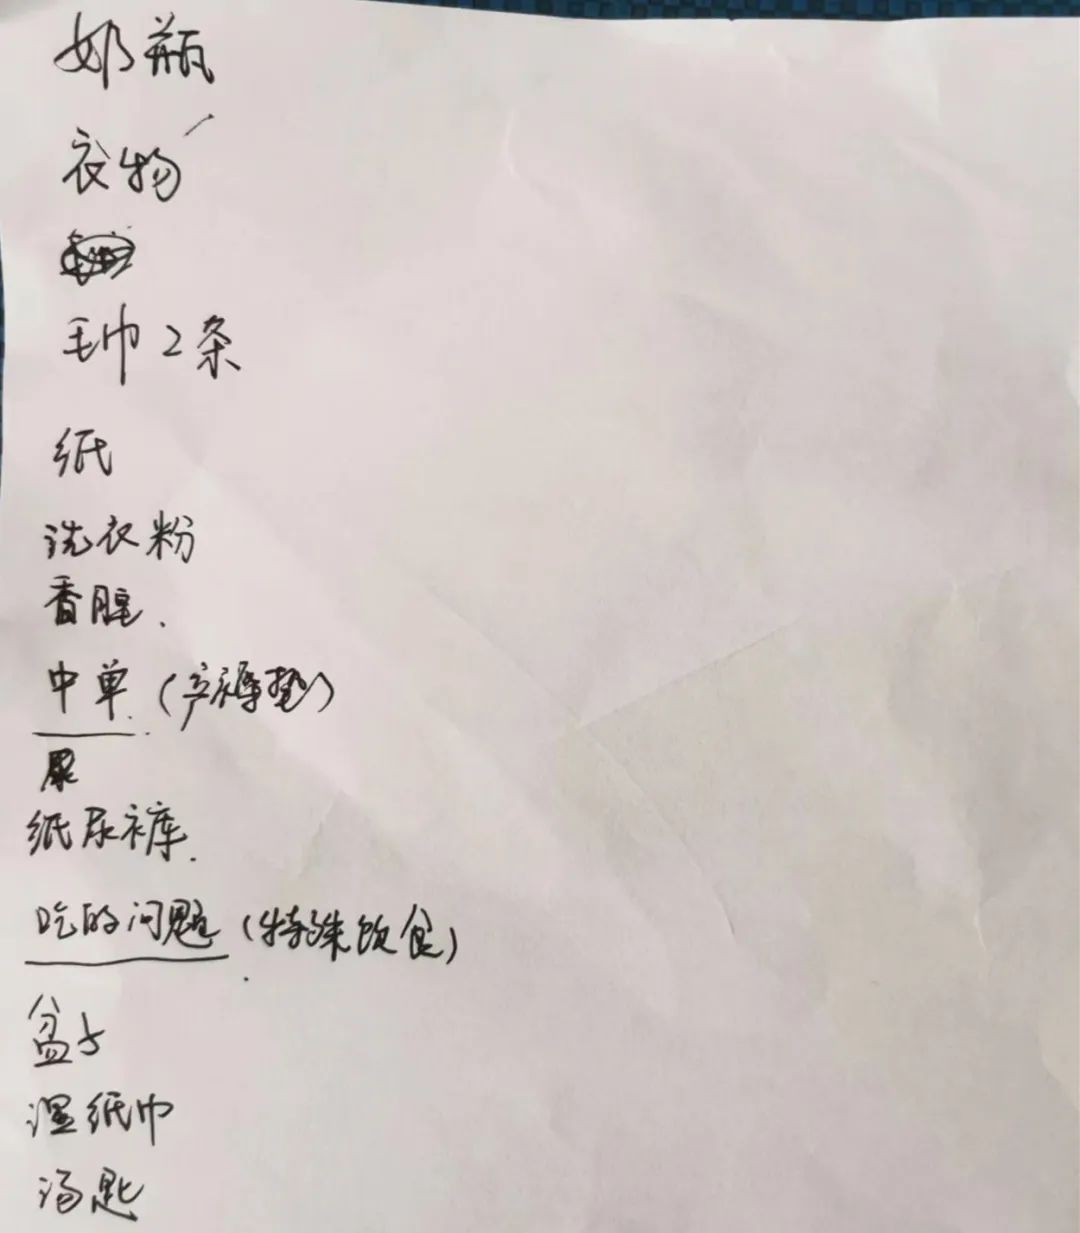 奶瓶
衣物
毛巾2条
纸
洗衣粉
香脏.
中单.(产褥垫)
尿
纸尿裤.
吃的问题(特殊饮食)
盆子
湿纸巾
汤匙